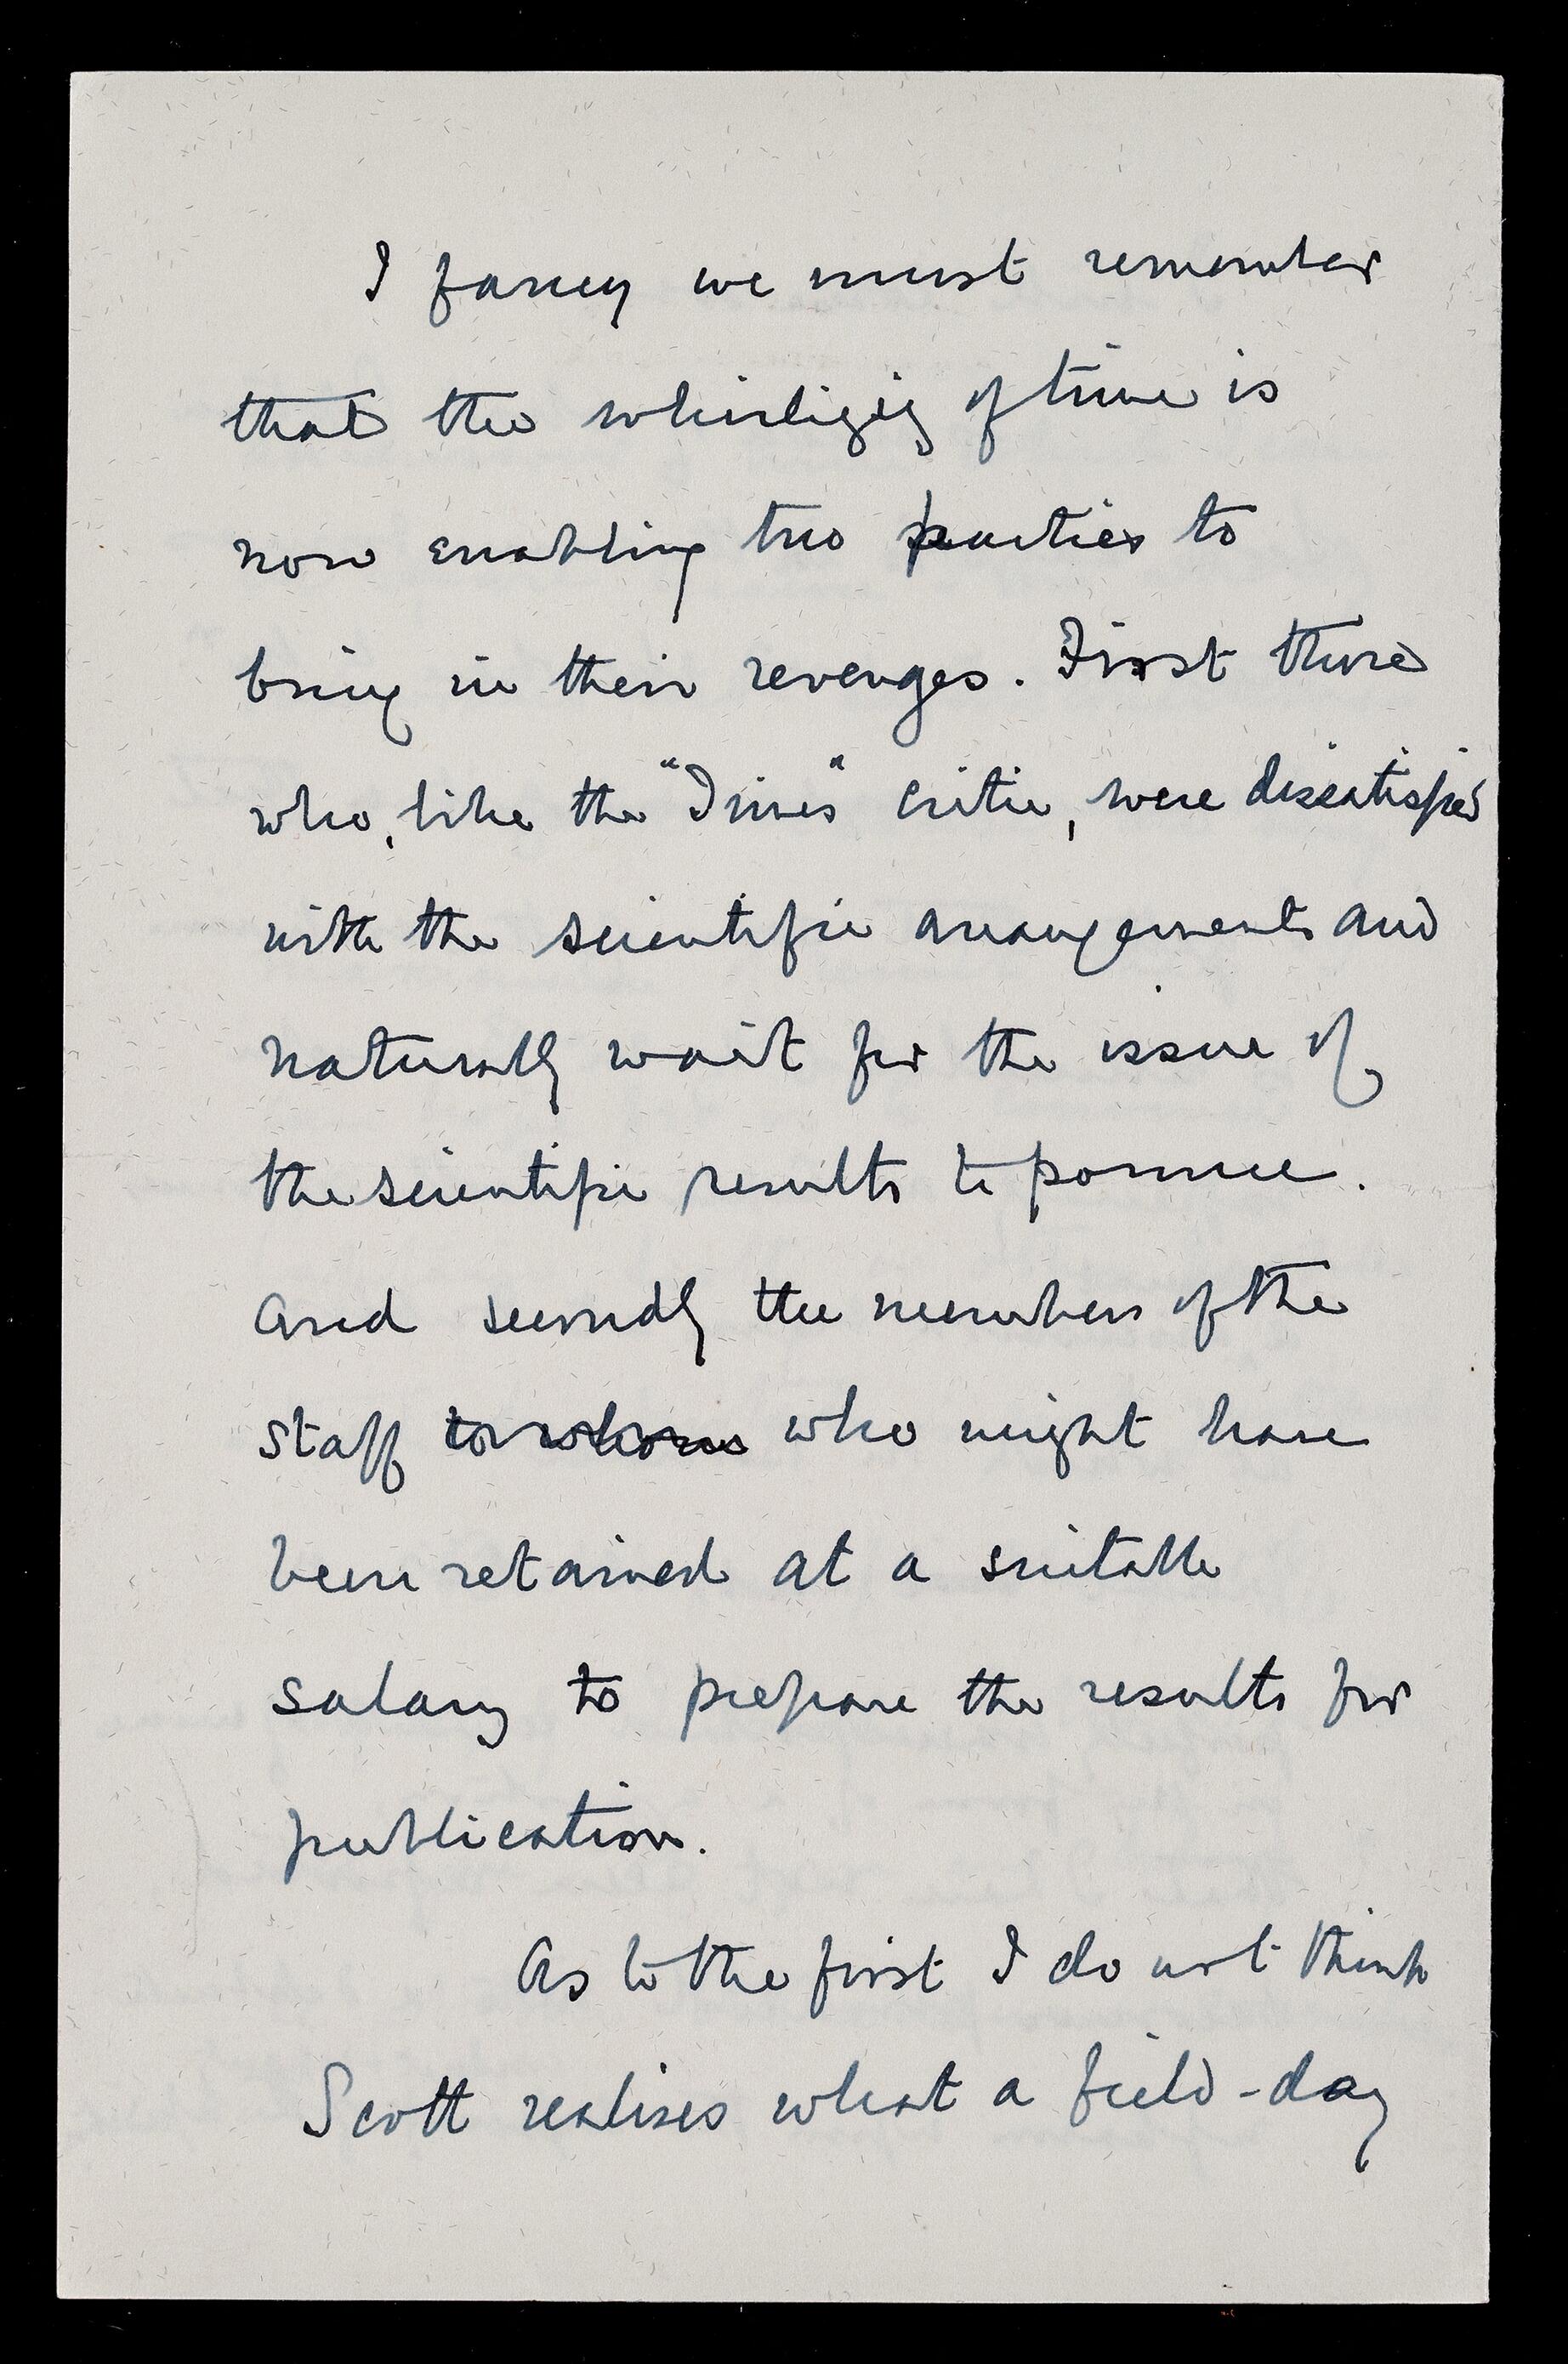 I fancy we must remember
that the whirligig of time is
now enabling two parties to
bring in their revenges. First those
who, like the "Times" critic, were dissatisfied
with the scientific arrangements and
naturally wait for the issue of
the scientific results to pounce.
And secondly the members of the
staff to whom who might have
been retained at a suitable
salary to prepare the results for
publication.
As to the first I do not think
Scott realises what a field-day